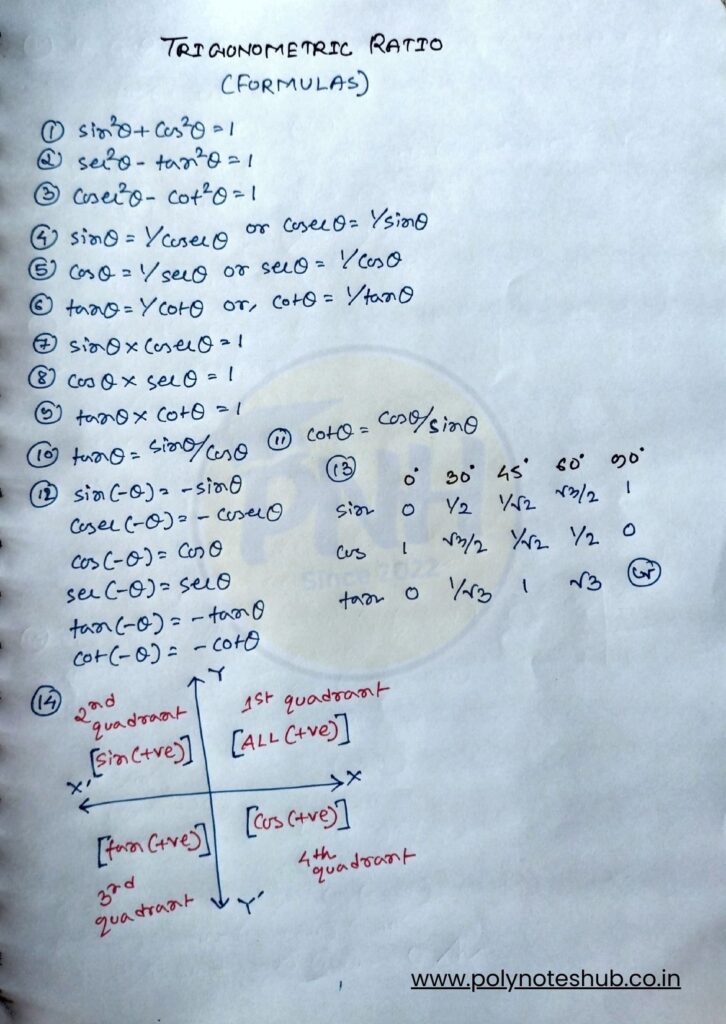 TRIGONOMETRIC RATIO
(FORMULAS)
① sin²θ + cos²θ = 1
② sec²θ - tan²θ = 1
③ cosec²θ - cot²θ = 1
④ sinθ = 1/cosecθ or cosecθ = 1/sinθ
⑤ cosθ = 1/secθ or secθ = 1/cosθ
⑥ tanθ = 1/cotθ or, cotθ = 1/tanθ
⑦ sinθ × cosecθ = 1
⑧ cosθ × secθ = 1
⑨ tanθ × cotθ = 1
⑩ tanθ = sinθ/cosθ ⑪ cotθ = cosθ/sinθ
⑫ sin(-θ) = -sinθ
cosec(-θ) = - cosecθ
cos(-θ) = cosθ
sec(-θ) = secθ
tan(-θ) = -tanθ
cot(-θ) = -cotθ
⑬ 0° 30° 45° 60° 90°
sin 0 1/2 1/√2 √3/2 1
cos 1 √3/2 1/√2 1/2 0
tan 0 1/√3 1 √3
PNH
Since 2022
⑭ 2nd quadrant
[sin(+ve)]
Y
1st quadrant
[ALL(+ve)]
X'
X
[tan(+ve)]
3rd quadrant
[cos(+ve)]
4th quadrant
Y'
www.polynoteshub.co.in